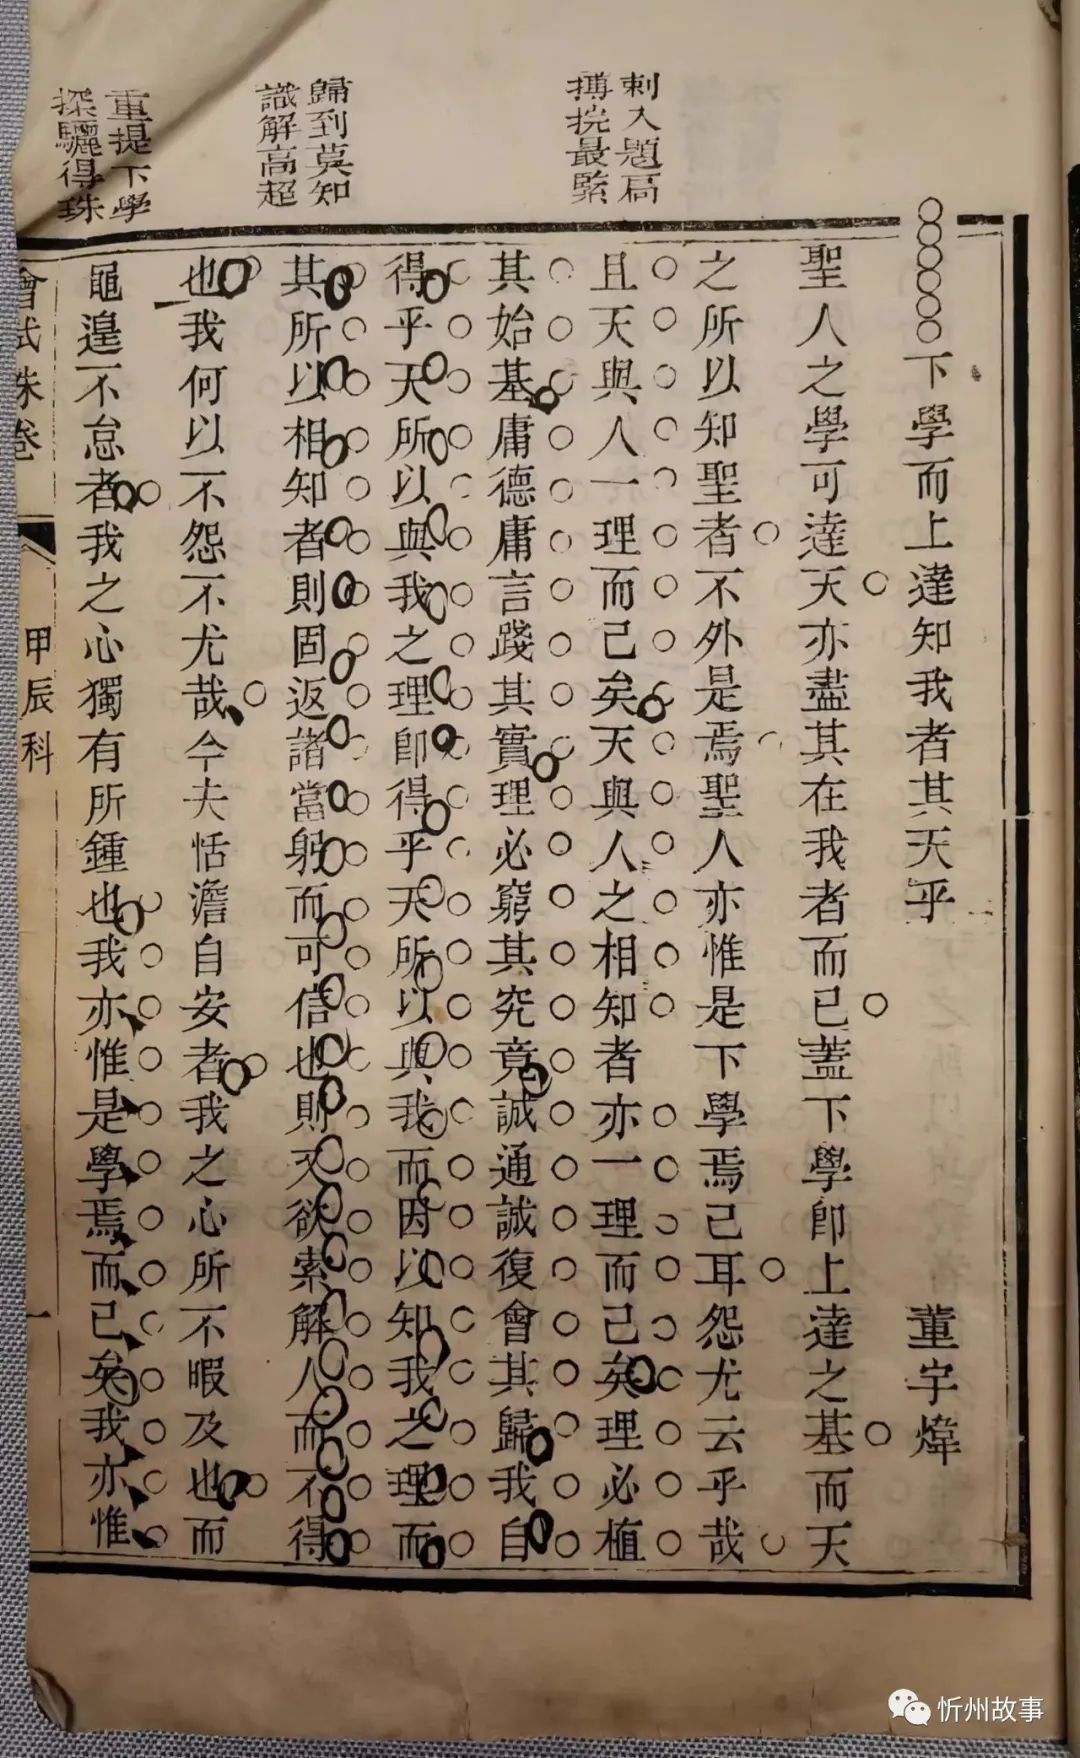 刺入題扃
摶捖最緊
歸到莫知
識解高超
重提下學
探驪得珠
下學而上達知我者其天乎
董宇煒
聖人之學可達天亦盡其在我者而已蓋下學卽上達之基而天
之所以知聖者不外是焉聖人亦惟是下學焉己耳怨尤云乎哉
且天與人一理而己矣天與人之相知者亦一理而己矣理必植
其始基庸德庸言踐其實理必窮其究竟誠通誠復會其歸我自
得乎天所以與我之理卽得乎天所以與我而因以知我之理而
其所以相知者則固返諸當躬而可信也則又欲索解人而不得
也我何以不怨不尤哉今夫恬澹自安者我之心所不暇及也而
黽遑不怠者我之心獨有所鍾也我亦惟是學焉而已矣我亦惟
會試硃卷
甲辰科
一
忻州故事